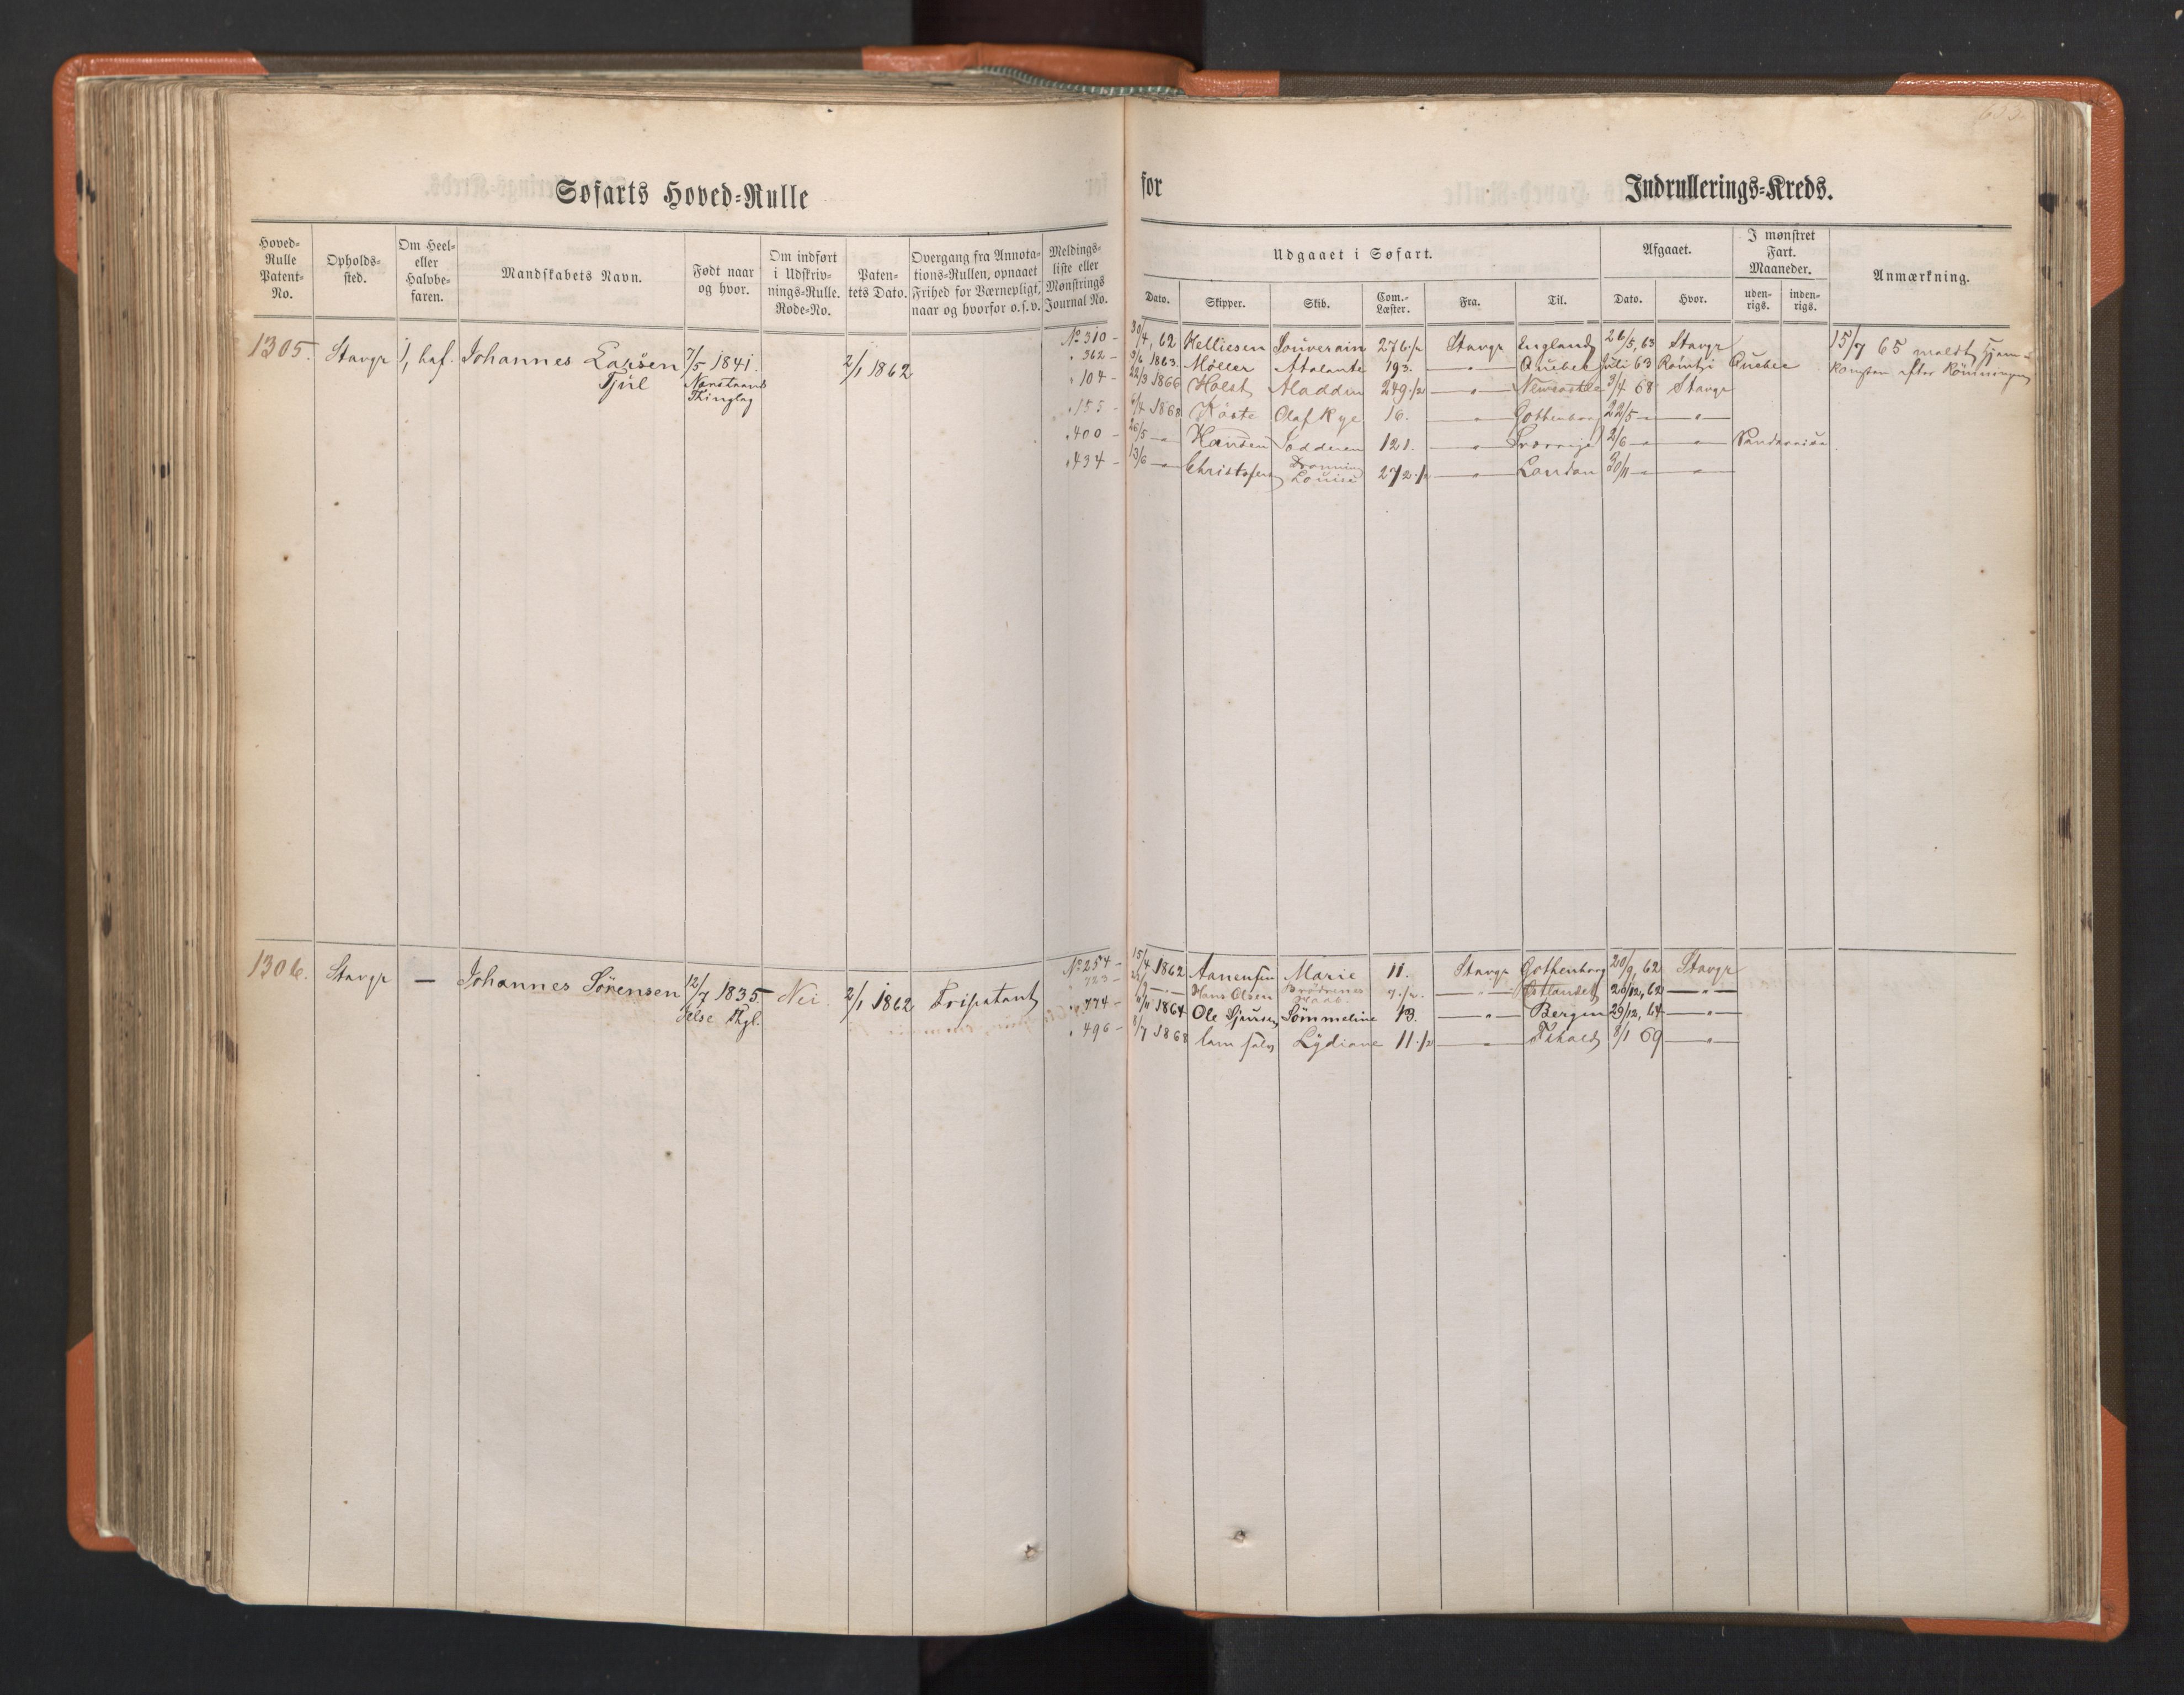 653.
Søfarts Hoved-Rulle for Indrullerings-Kreds.
Hoved-Rulle Patent-No.
Opholds-sted.
Om Heel- eller Halvbe-faren.
Mandskabets Navn.
Født naar og hvor.
Om indført i Udskriv-nings-Rulle. Rode-No.
Paten-tets Dato.
Overgang fra Annota-tions-Rullen, opnaaet Frihed for Værnepligt, naar og hvorfor o.s.v.
Meldings-liste eller Mønstrings Journal No.
Udgaaet i Søfart.
Dato. Skipper. Skib. Com.-Læster. Fra. Til.
Afgaaet.
Dato. Hvor.
I mønstret Fart. Maaneder.
uden-rigs. inden-rigs.
Anmærkning.
1305. Stavgr ½ haf. Johannes Larsen 7/5 1841. 2/1 1862 No 310 - 30/4, 62 Helliesen Souverain 276 ½ Stavgr England 26/5, 63 Stavgr 15/7 65 meldt Hjem-
Tjul Nærstrands Thinglag
" 362 - 3/6 1863. Møller Atalante 193. — " — Quebek Juli 63 Römt i Quebec komsten efter Römningen
" 104 - 22/3 1866 Holst Aladdin 249 ½ — " — Newcastle 3/4 68 Stavgr
" 155 - 6/4 1868 Olaf Rye 16. — " — Gothenborg 22/5 — " —
" 400 - 26/5 — " — Hansen 121. — " — 2/6 — " —
" 434 - 13/6 — " — Christofersen Dronning Louise 272 ½ — " — London 30/11 — " —
1306. Stavgr — Johannes Sörensen 12/7 1835. Nei. 2/1 1862 Fripatent No 254 - 15/4 1862 Aanensen Marie 11. Stavgr Gothenborg 20/9, 62 Stavgr
Jelse Thgl.
" 723 - Hans Olsen Brødrenes Haab 7 ½. — " — Östlandet 20/12, 62 — " —
" 774 - 11/11 1864 Ole Sjursen Sömmeline 13. — " — Bergen 29/12, 64 — " —
" 496 - 8/7 1868 Lam selv Lydiane 11 ½ — " — 8/1 69 — " —